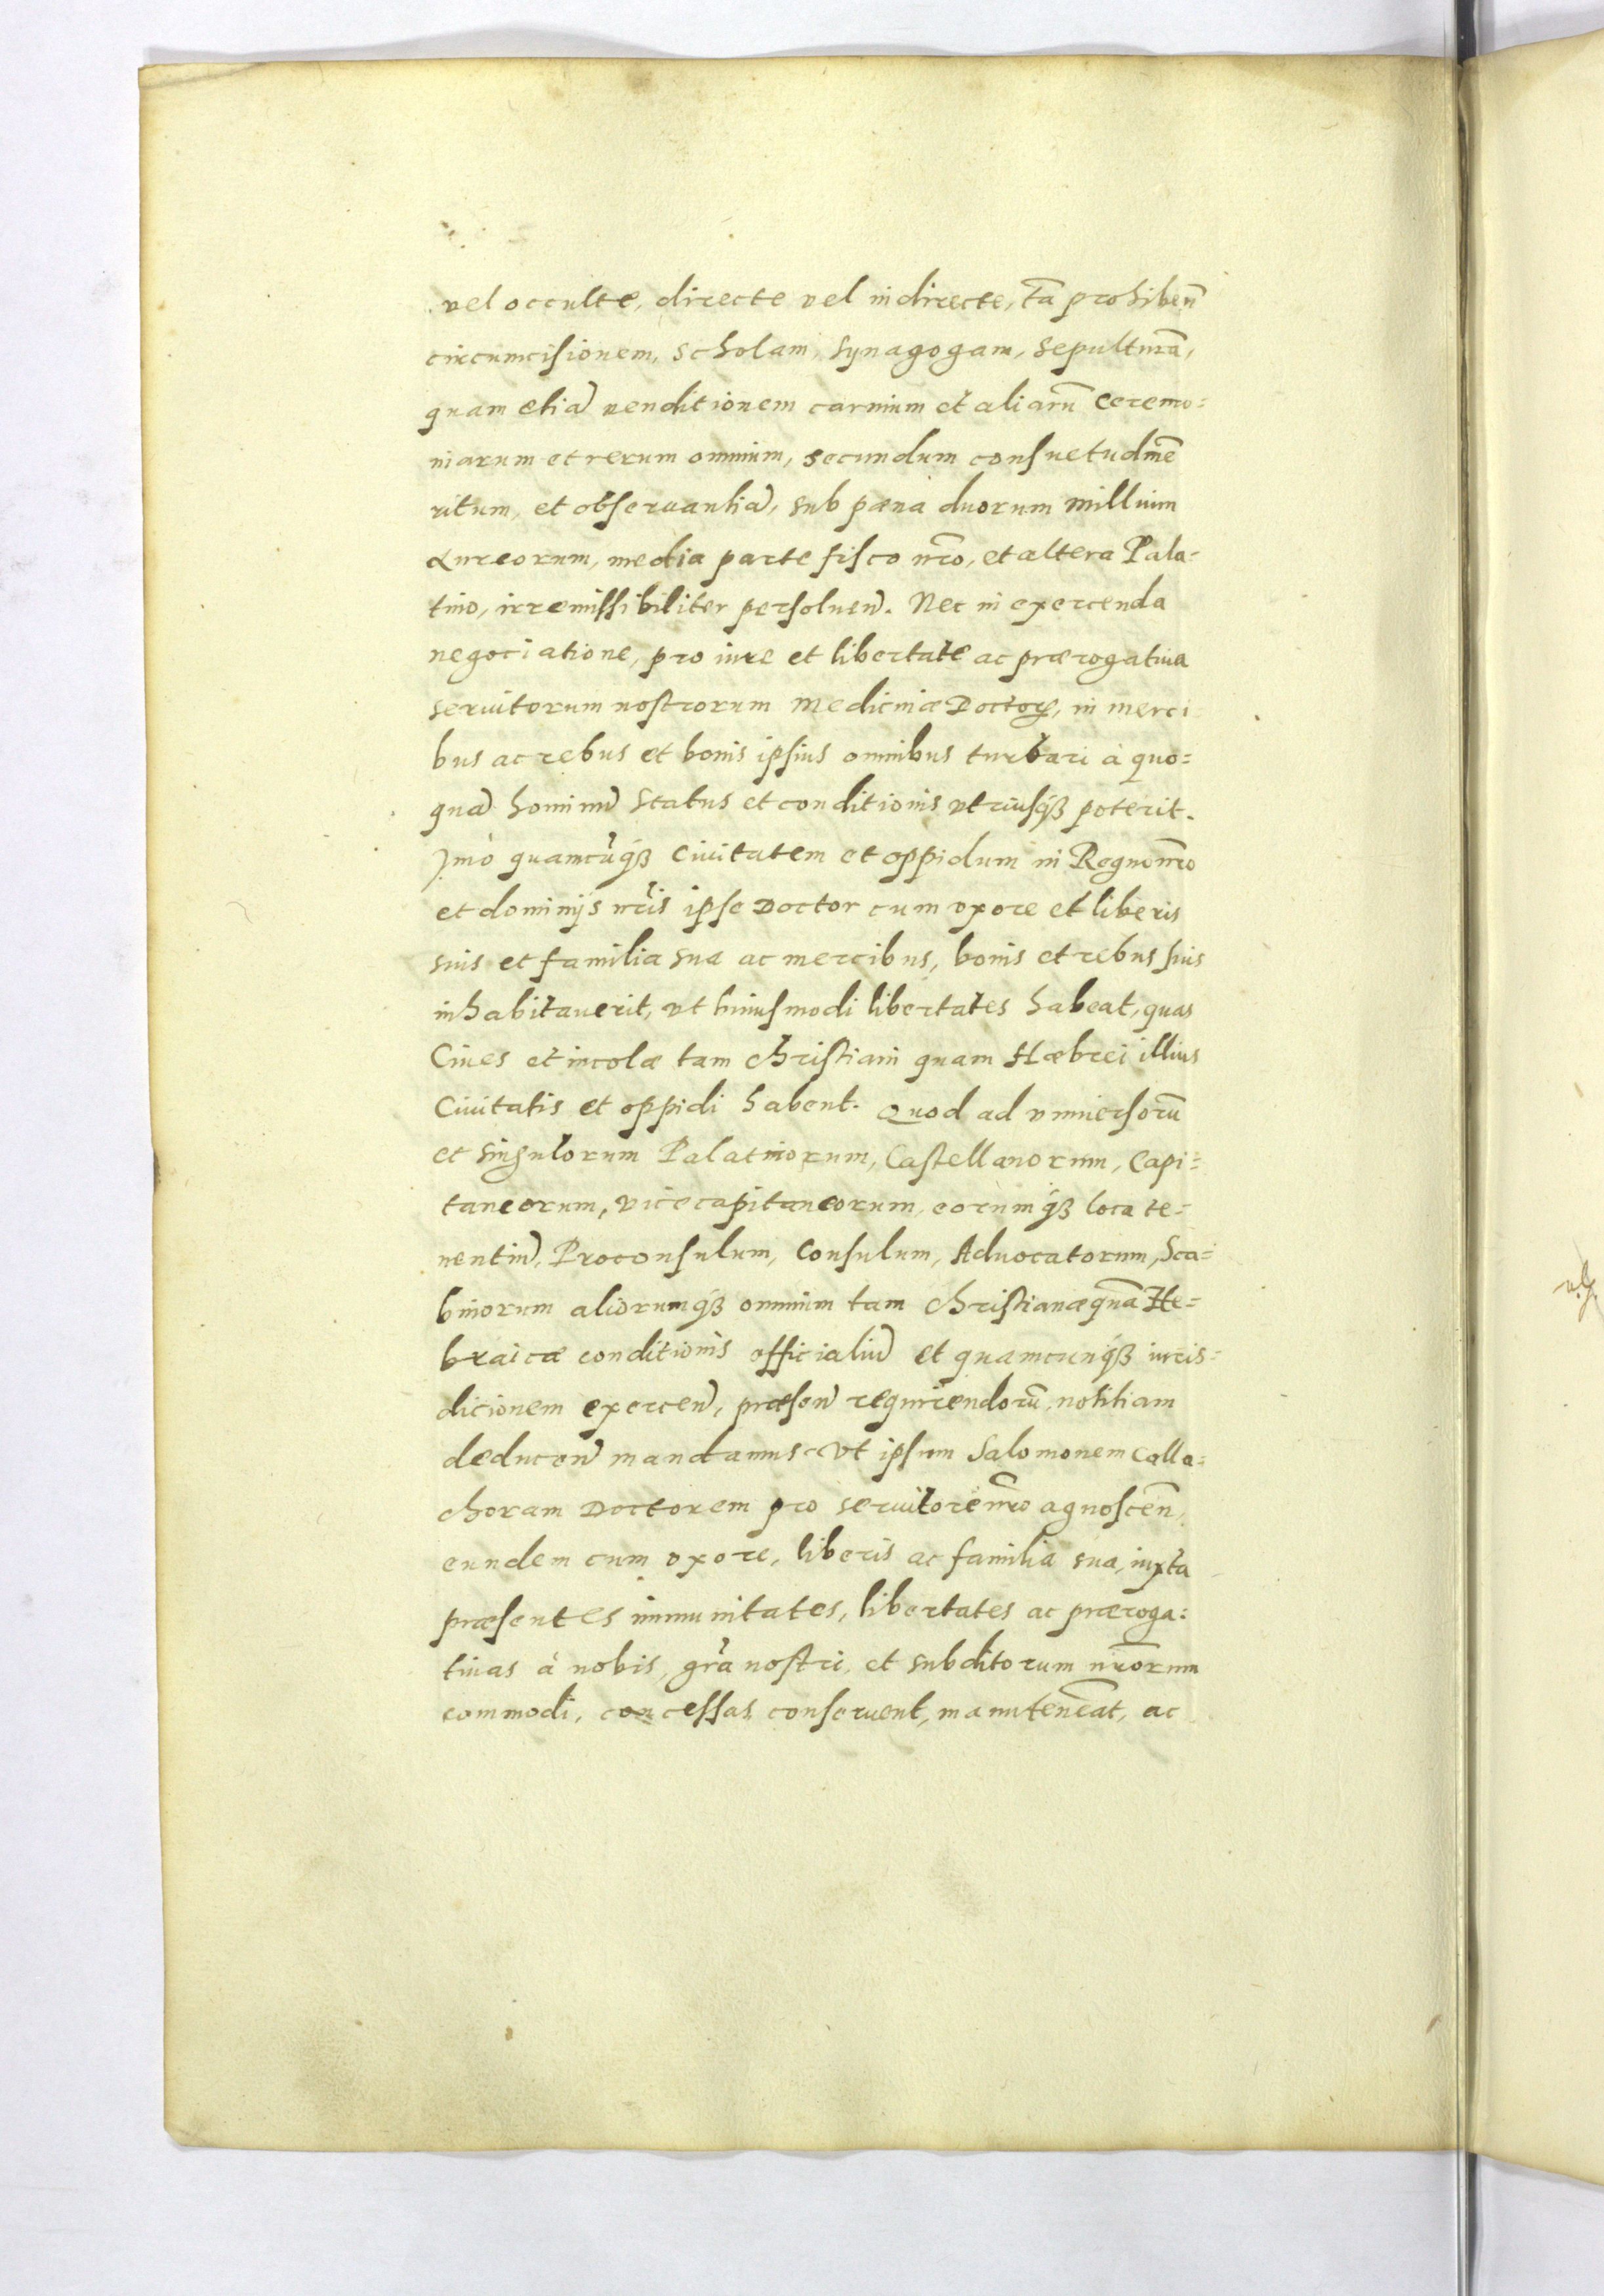 vel occulte, directe vel indirecte, tã prohibeñ
circumcisionem, scholam, synagogam, sepulturã,
quam etiã venditionem carnium et aliarũ ceremo=
niarum et rerum omnium, secundum consuetudinẽ
ritum, et obseruantiã, sub pæna duorum millium
Aureorum, media parte fisco nr̃o, et altera Pala=
tino, irremissibiliter persoluen̄. Nec in exercenda
negociatione, pro iure et libertate ac prærogatiua
seruitorum nostrorum Medicinæ Doctoꝝ, in merci
bus ac rebus et bonis ipsius omnibus turbari à quo=
quã hominũ status et conditionis vtriusqꝫ poterit.
Imò quamcũqꝫ Ciuitatem et oppidum in Regno nr̃o
et dominijs nr̃is ipse Doctor cum vxore et liberis
suis et familia sua ac mercibus, bonis et rebus suis
inhabitauerit, vt huiusmodi libertates habeat, quas
Ciues et incolæ tam christiani quam Hæbrei illius
Ciuitatis et oppidi habent. Quod ad vniuersorũ
et singulorum Palatinorum, Castellanorum, Capi=
taneorum, vicecapitaneorum, eorumqꝫ loca te=
nentiũ, Proconsulum, Consulum, Aduocatorum, Sca=
binorum aliorumqꝫ omnium tam christianæ quã He=
braicæ conditionis officialiũ et quamcunqꝫ iuris=
dicionem exercen̄, præsen̄ requirendorũ, notitiam
deducen̄ mandamus. Vt ipsum Salomonem Calla=
choram Doctorem pro seruitore nr̃o agnoscen̄,
eundem cum vxore, liberis ac familia sua, iuxta
præsentes immunitates, libertates ac præroga=
tiuas à nobis, gr̃a nostri, et subditorum nr̃orum
commodi, concessas conseruent, manuteneãt, ac